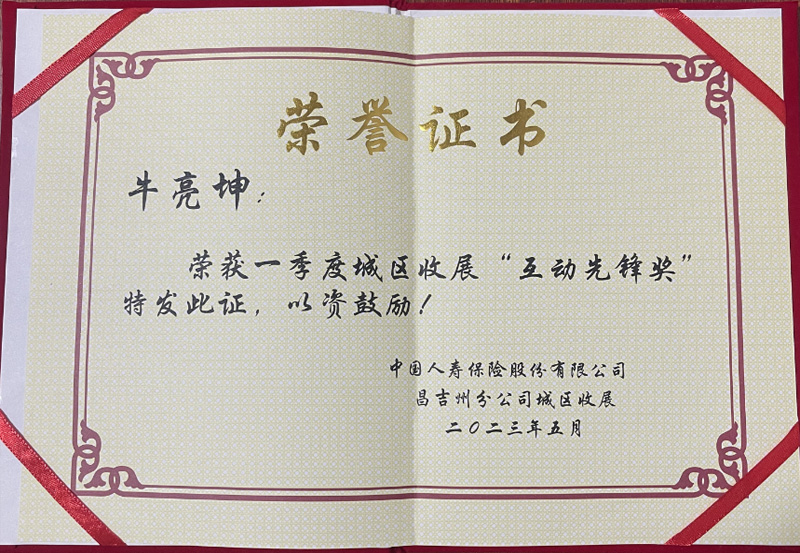 荣誉证书
牛亮坤：
荣获一季度城区收展“互动先锋奖”
特发此证，以资鼓励！
中国人寿保险股份有限公司
昌吉州分公司城区收展
二〇二三年五月